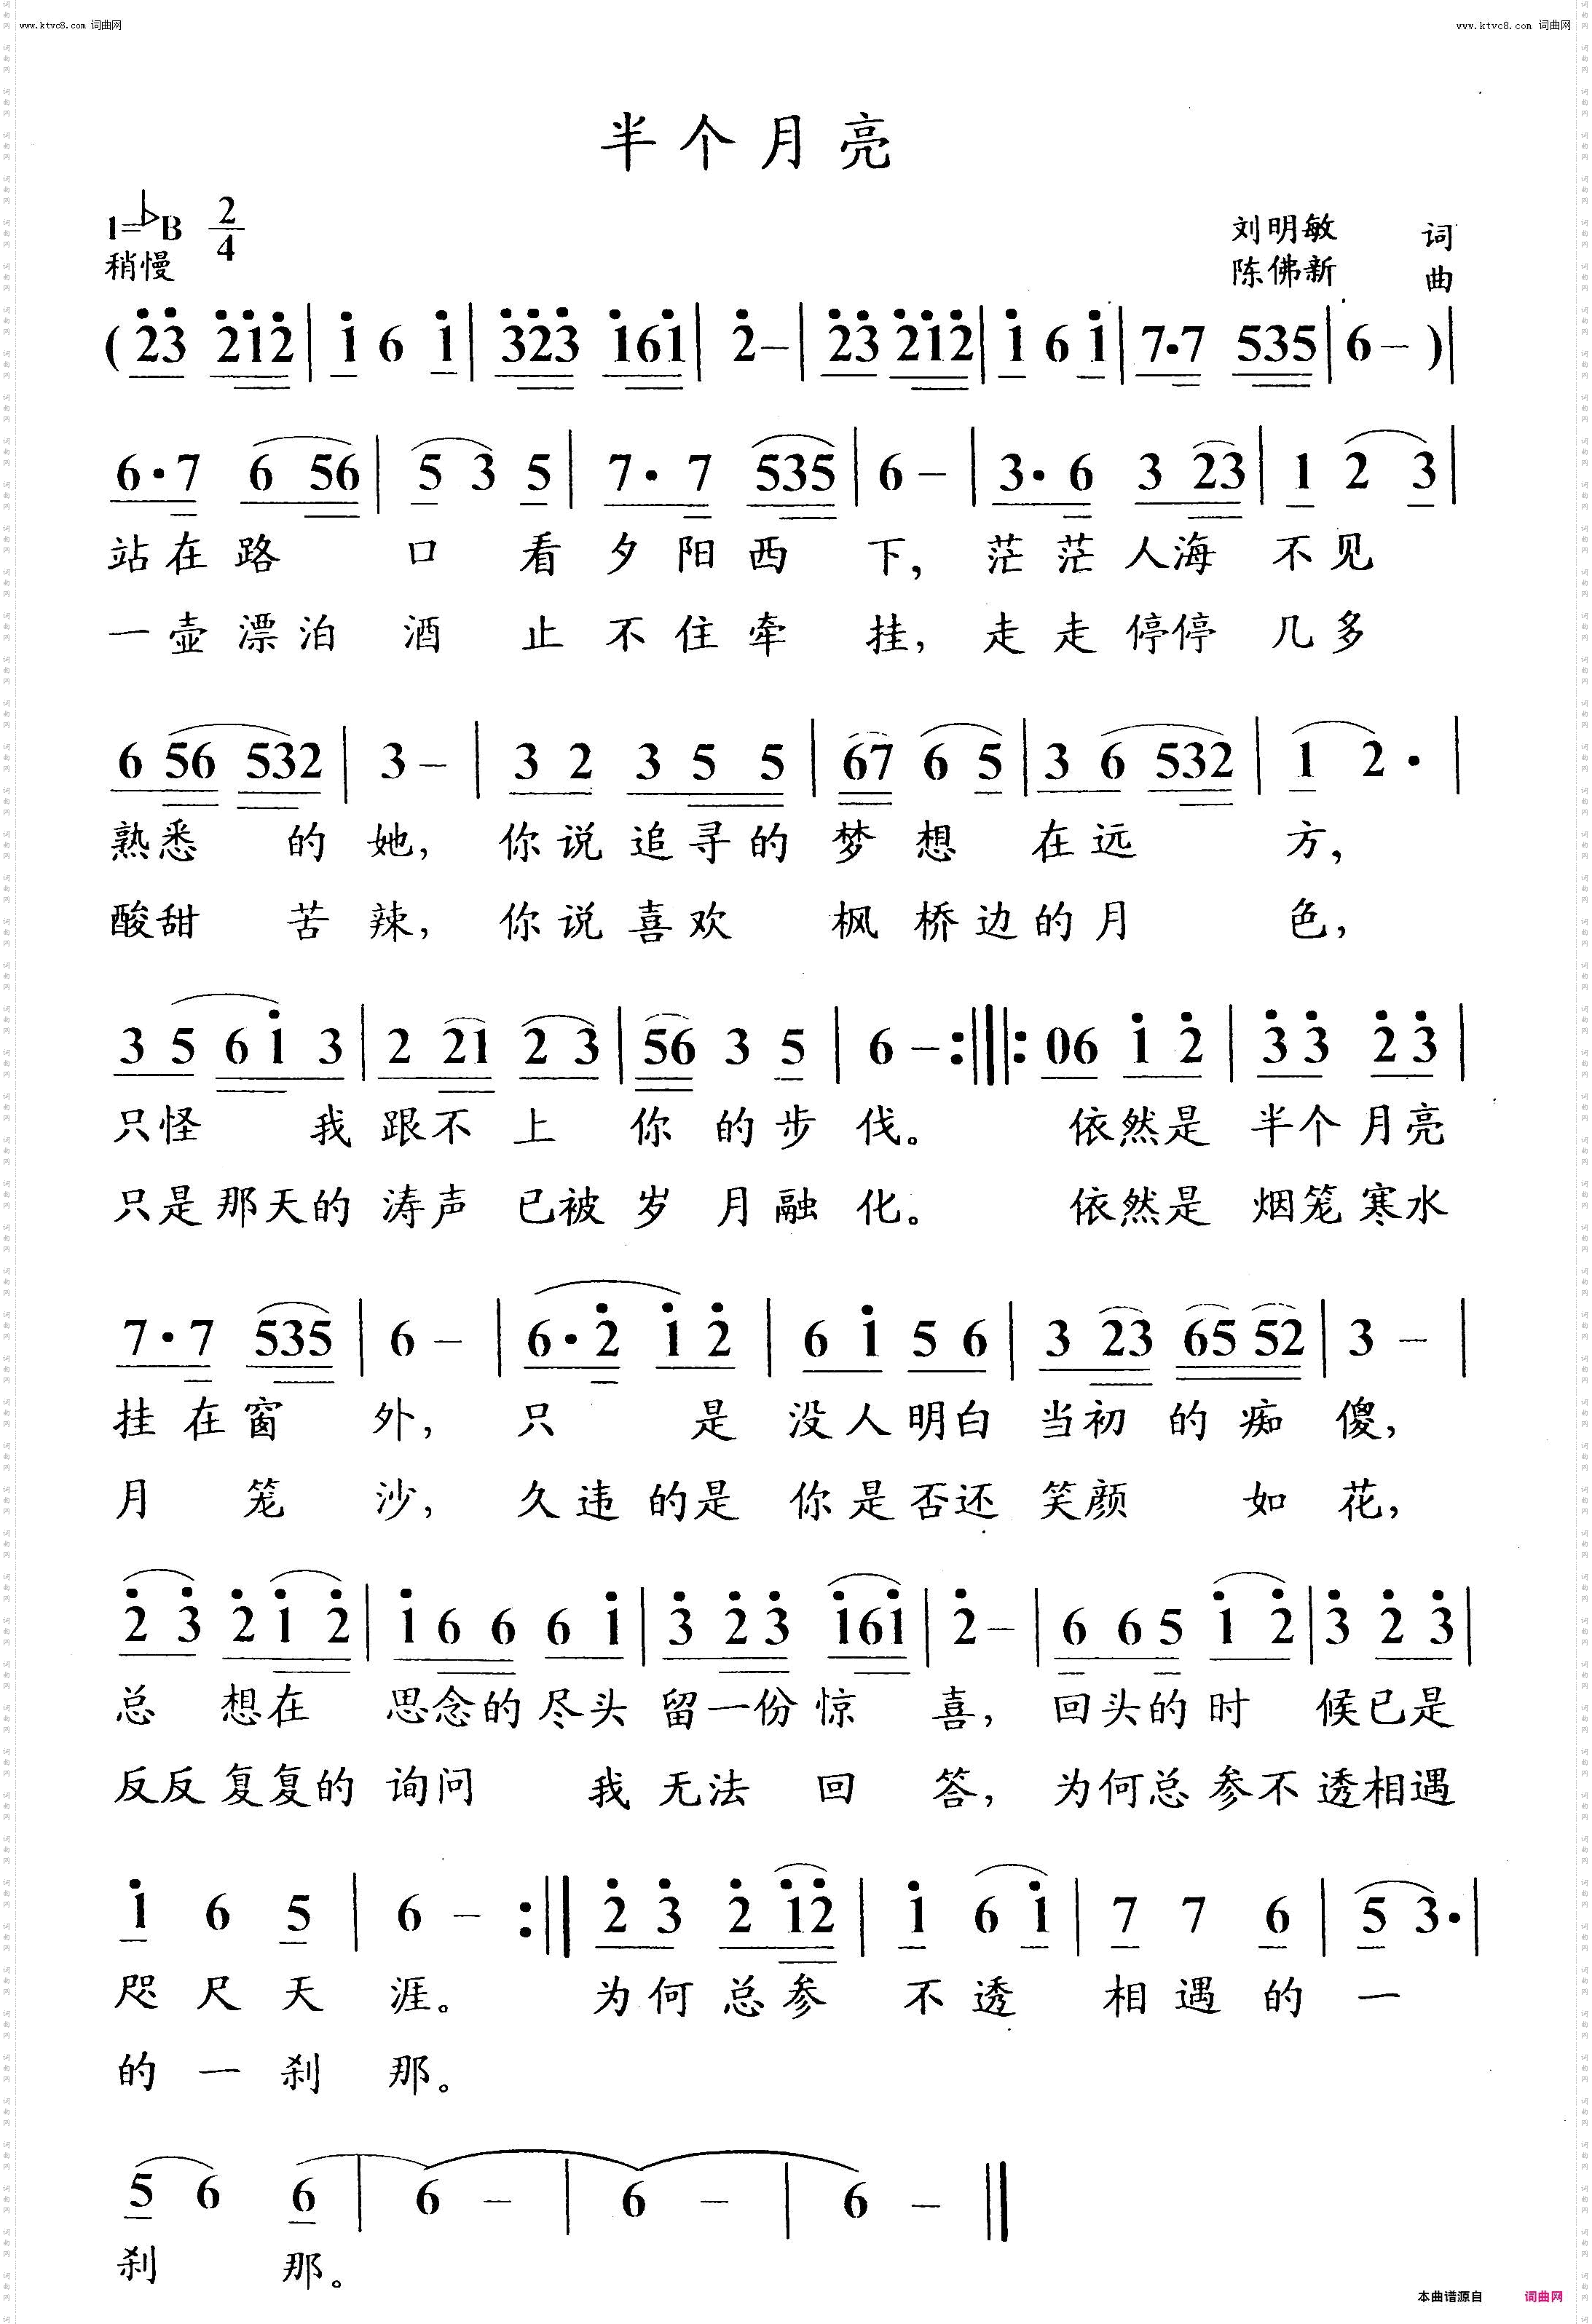 www.ktvc8.com 词曲网 www.ktvc8.com 词曲网
半个月亮
1=♭B 2/4 刘明敏 词
稍慢 陈佛新 曲
(23 212|1 6 1|323 161|2-|23 212|1 6 1|7·7 535|6-)|
6·7 6 56|5 3 5|7·7 535|6-|3·6 3 23|1 2 3|
站在路 口 看夕阳西 下，茫茫人海 不见
一壶漂泊 酒 止不住牵 挂，走走停停 几多
6 56 532|3-|3 2 3 5 5|67 6 5|3 6 532|1 2·|
熟悉 的她，你说追寻的梦想 在远 方，
酸甜 苦辣，你说喜欢 枫桥边的月 色，
3 5 6 1 3|2 21 2 3|56 3 5|6-:||:06 1 2|3 3 2 3|
只怪 我跟不上 你的步伐。 依然是半个月亮
只是那天的涛声已被岁月融化。 依然是烟笼寒水
7·7 535|6-|6·2 1 2|6 1 5 6|3 23 65 52|3-|
挂在窗 外，只 是没人明白当初的痴傻，
月 笼 沙，久违的是你是否还笑颜 如花，
2 3 2 1 2|1 6 6 6 1|3 2 3 161|2-|6 6 5 1 2|3 2 3|
总 想在 思念的尽头留一份惊 喜，回头的时 候已是
反反复复的询问 我无法 回 答，为何总参不透相遇
1 6 5|6-:||2 3 2 12|1 6 1|7 7 6|5 3·|
咫尺天 涯。 为何总参 不透 相遇的一
的一刹 那。
5 6 6|6-|6-|6-||
刹 那。
本曲谱源自 词曲网